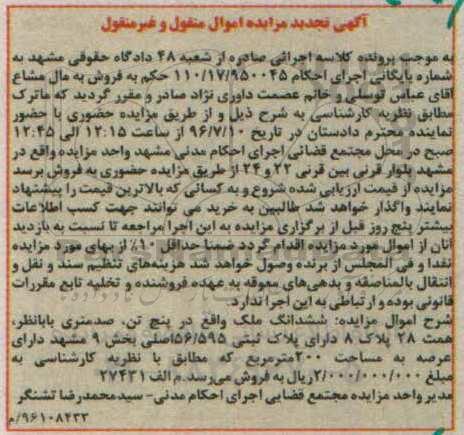 آگهی تجدید مزایده اموال منقول و غیرمنقول
به موجب پرونده کلاسه اجرائی صادره از شعبه ۴۸ دادگاه حقوقی مشهد به
شماره بایگانی اجرای احکام ۱۱۰/۱۷/۹۵۰۰۴۵ حکم به فروش به مال مشاع
آقای عباس توسلی و خانم عصمت داوری نژاد صادر و مقرر گردید که ماترک
مطابق نظریه کارشناسی به شرح ذیل و از طریق مزایده حضوری با حضور
نماینده محترم دادستان در تاریخ ۹۶/۷/۱۰ از ساعت ۱۲:۱۵ الی ۱۲:۴۵
صبح در محل مجتمع قضائی اجرای احکام مدنی مشهد واحد مزایده واقع در
مشهد بلوار قرنی بین قرنی ۲۲ و ۲۴ از طریق مزایده حضوری به فروش برسد
مزایده از قیمت ارزیابی شده شروع و به کسانی که بالاترین قیمت را پیشنهاد
نمایند واگذار خواهد شد طالبین به خرید می توانند جهت کسب اطلاعات
بیشتر پنج روز قبل از برگزاری مزایده به این اجرا مراجعه تا نسبت به بازدید
آنان از اموال مورد مزایده اقدام گردد ضمنا حداقل ۱۰٪ از بهای مورد مزایده
نقدا و فی المجلس از برنده وصول خواهد شد هزینه‌های تنظیم سند و نقل و
انتقال بالمناصفه و بدهی‌های معوقه به عهده فروشنده و تخلیه تابع مقررات
قانونی بوده و ارتباطی به این اجرا ندارد.
شرح اموال مزایده: ششدانگ ملک واقع در پنج تن، صدمتری بابانظر،
همت ۲۸ پلاک ۸ دارای پلاک ثبتی ۵۶/۵۹۵اصلی بخش ۹ مشهد دارای
عرصه به مساحت ۲۰۰مترمربع که مطابق با نظریه کارشناسی به
مبلغ ۲/۰۰۰/۰۰۰/۰۰۰ریال به فروش می‌رسد.م الف ۲۷۴۳۱
مدیر واحد مزایده مجتمع قضایی اجرای احکام مدنی- سیدمحمدرضا تشنگر
۹۶۱۰۸۴۳۳/م